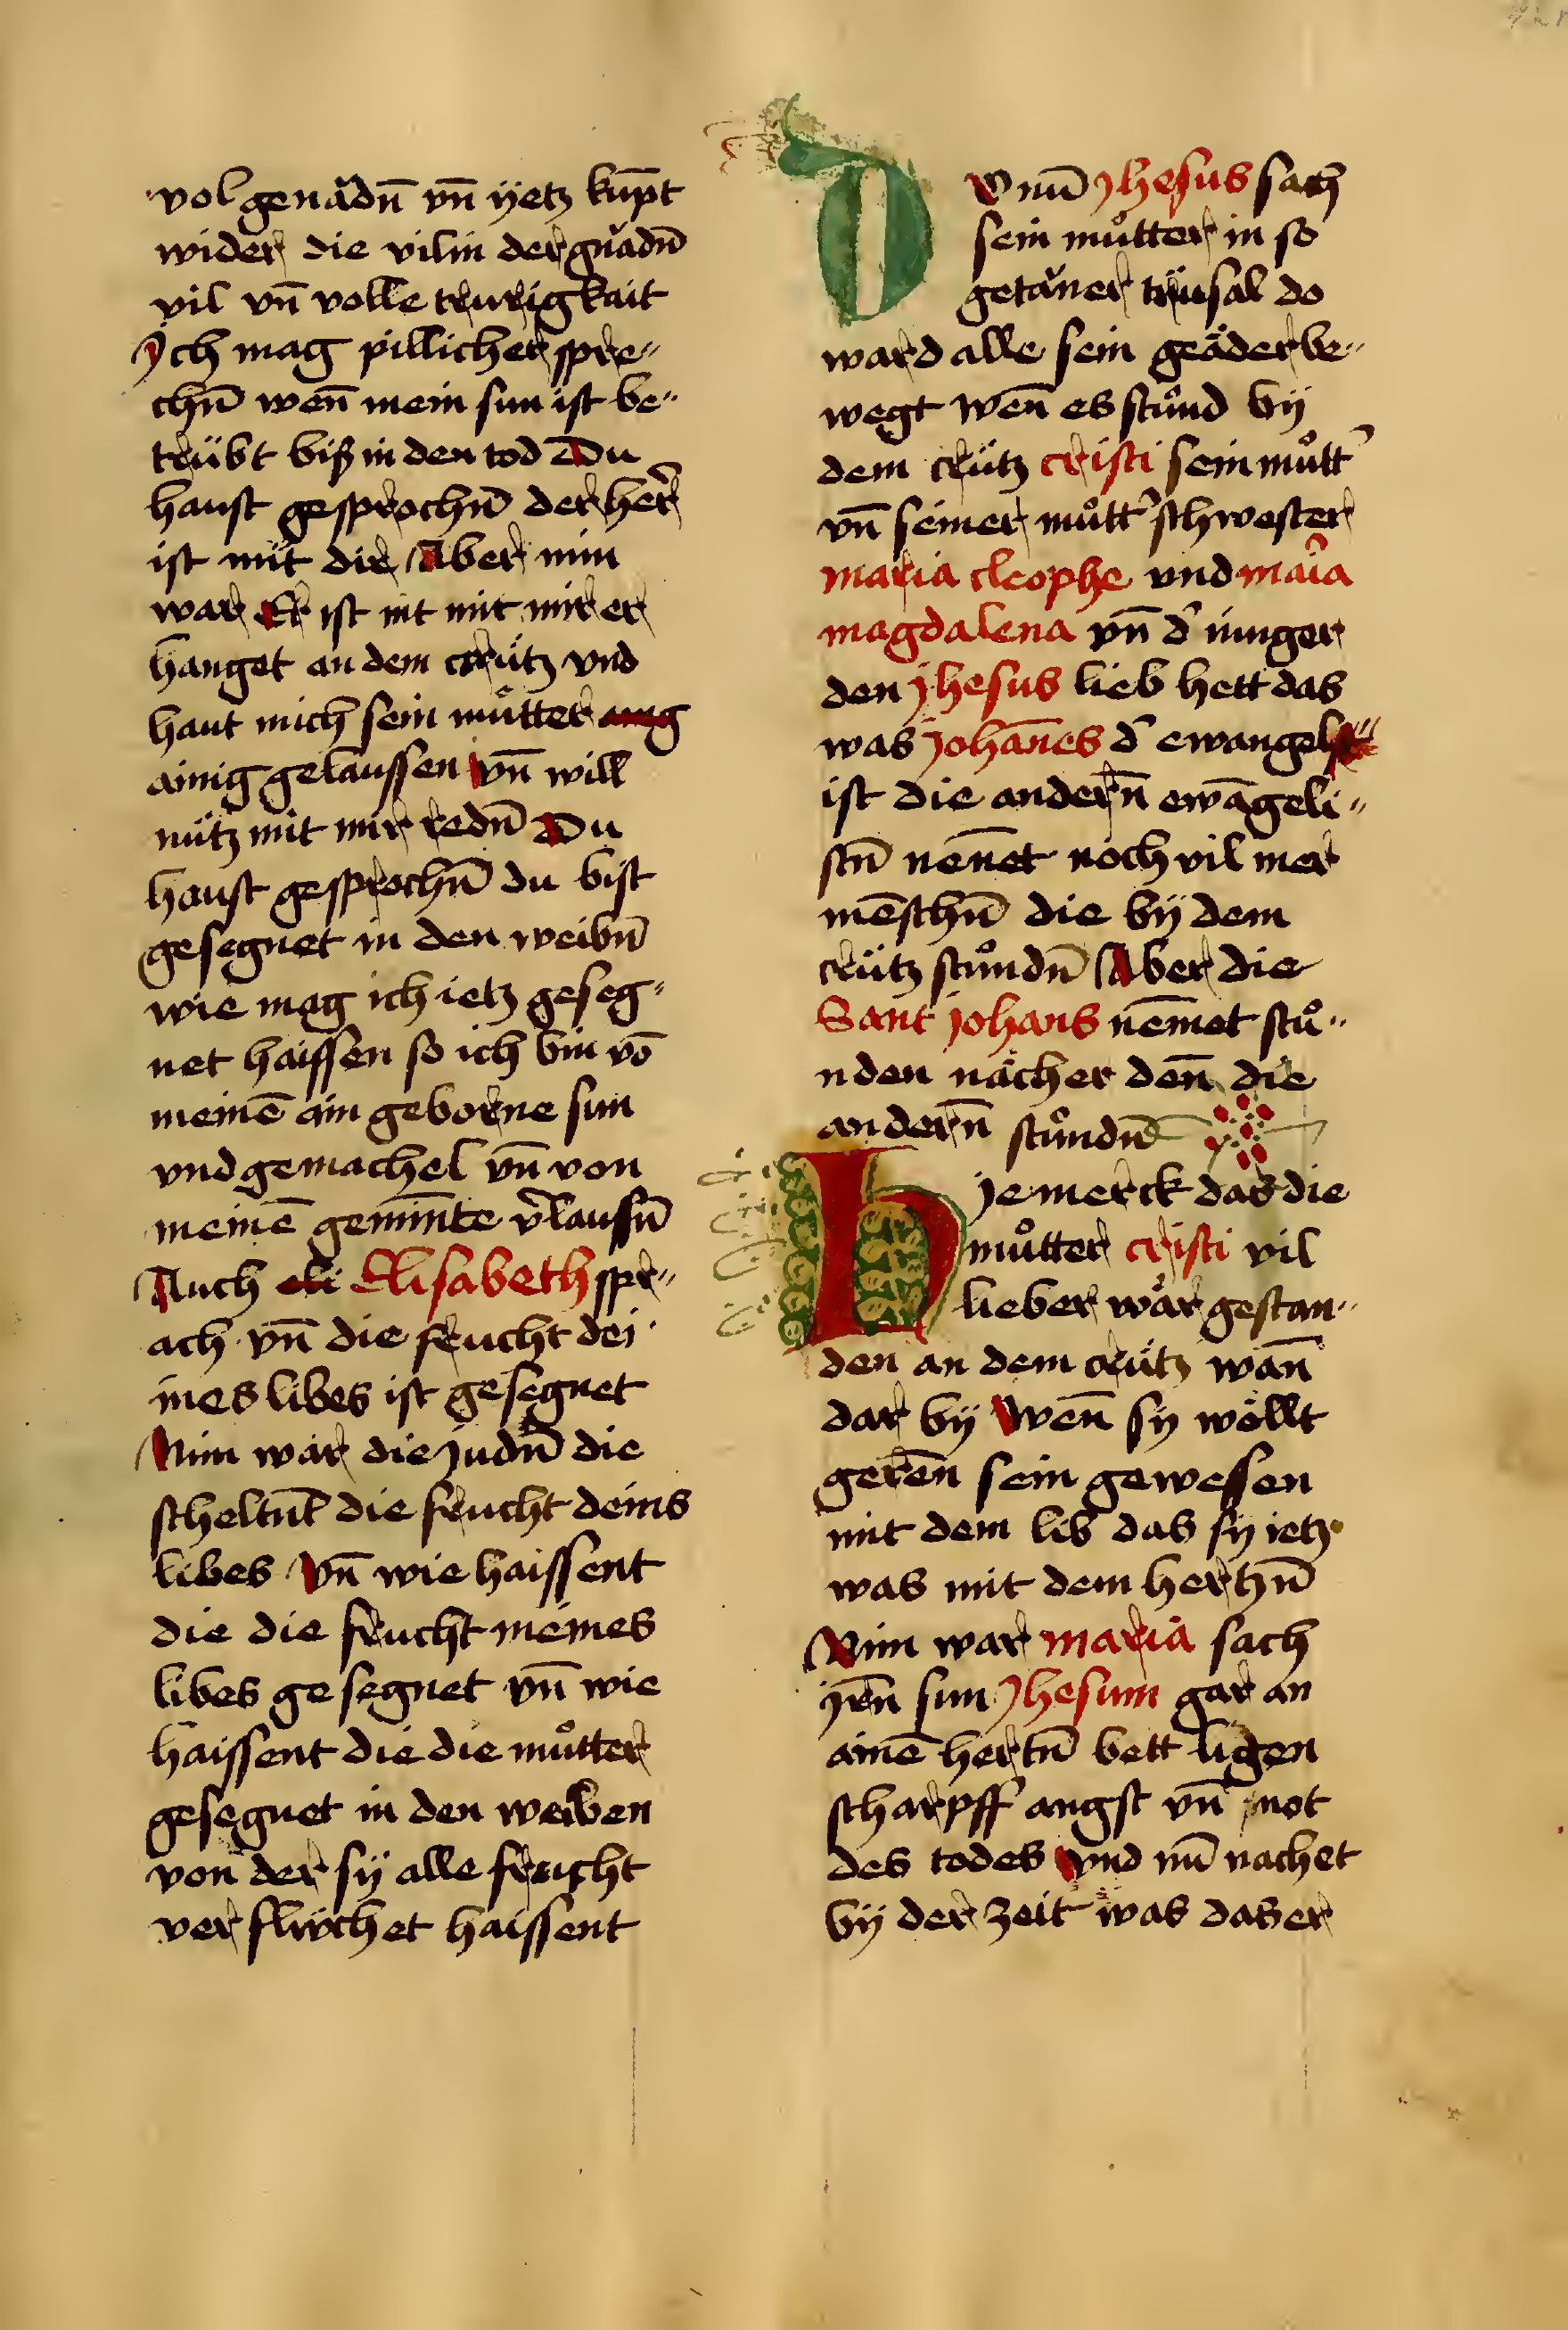 vol genădn̄ vn̄ ÿetz kūpt
wider die vilin der gnădn̄
vil vn̄ volle trurigkait
Ich mag pillicher spre„
chn̄ wen̄ mein sun ist be„
trübt biß in den tod Du
haust gesprochn̄ der her̄
ist mit dir Aber nim
war Er ist nit mit mir er
hanget an dem crütz vnd
haut mich sein muͦtter
ainig gelaussen vn̄ will
nütz mit mir redn̄ Du
haust gesprochn̄ du bist
gesegnet in den weibn̄
wie mag ich ietz geseg„
net haissen so ich bin vō
meinē ain geborne sun
vnd gemachel vn̄ von
meinē gemīnte v̉lausn̄
Auch eli Elisabeth spr„
ach vn̄ die frucht dei
nes libes ist gesegnet
Nim war die judn̄ die
scheltn̄t die frucht deins
libes vn̄ wie haissent
die die frucht meines
libes gesegnet vn̄ wie
haissent die die muͦtter
gesegnet in den weiben
von der sÿ alle frucht
verfluͦchet haissent
DO nū Jhesus sach
sein muͦtter in so
getăner trüsal do
ward alle sein geäder be„
wegt Wen̄ es stuͦnd bÿ
dem crütz cristi sein muͦtt̉
vn̄ seiner muͦtt̉ schwester
maria cleophe vnd mar̉ia
magdalena vn̄ d̉ iunger
den jhesus lieb hett das
was johānes d̉ ewangelst„
ist die andern̄ ewāgeli„
stn̄ nēnet noch vil mer
mēschn̄ die bÿ dem
crütz stuͦndn̄ Aber die
Sant johans nēmet stuͦ„
nden nächer den̄ die
andern̄ stuͦndn̄
HJe merck das die
muͦtter cristi vil
lieber wär gestan„
den an dem crütz wān
dar bÿ Wen̄ sÿ wöllt
gerēn sein gewessen
mit dem lib das sÿ ietz
was mit dem hertzn̄
Nim war maria sach
jrēn sun Jhesum gar an
ainē hertn̄ bett ligen
scharpff angst vn̄ not
des todes vnd nū nachet
bÿ der zeit was das er